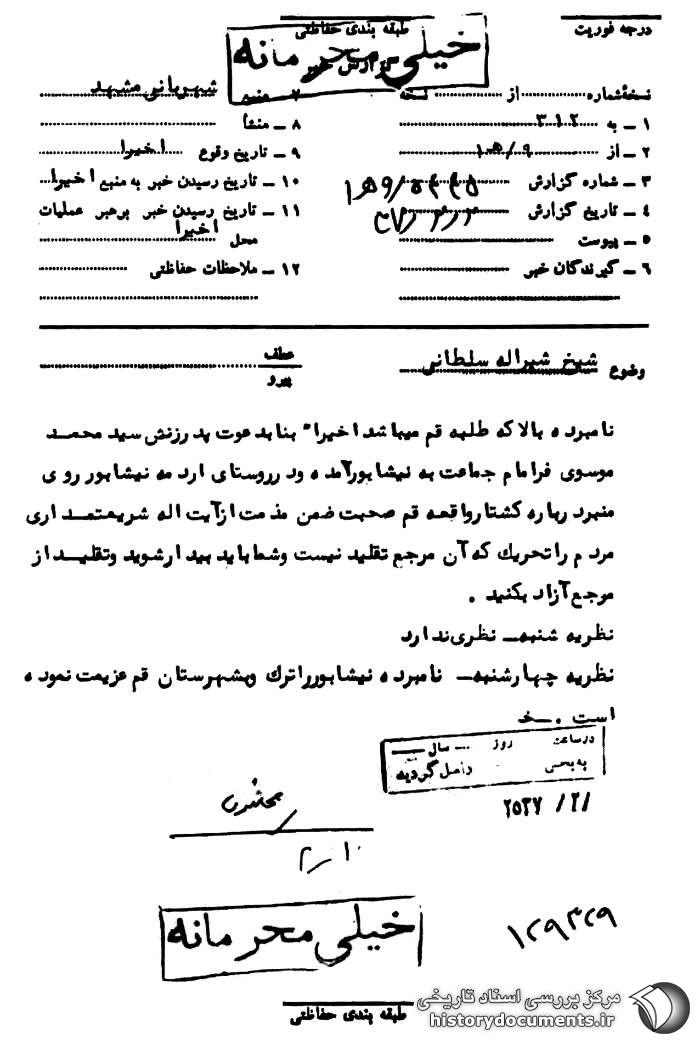 درجه فوریت
طبقه بندی حفاظتی
خیلی محرمانه
گزارش خبر
نسخهٔ شماره از نسخه
۱ – به ۳۱۲
۲ – از ۹/هـ۱
۳ – شماره گزارش
۴ – تاریخ گزارش
۵ – پیوست
۶ – گیرندگان خبر
۷ – منبع شهربانی مشهد
۸ – منشأ
۹ – تاریخ وقوع اخیرا
۱۰ – تاریخ رسیدن خبر به منبع اخیرا
۱۱ – تاریخ رسیدن خبر برهبر عملیات
محل اخیرا
۱۲ – ملاحظات حفاظتی
وضوع شیخ شیراله سلطانی
عطف
پیرو
نامبرده بالا که طلبه قم میباشد اخیرا" بنابدعوت پدرزنش سید محمد
موسوی فر امام جماعت به نیشابور آمده و در روستای اردمه نیشابور روی
منبر درباره کشتار واقعه قم صحبت ضمن مذمت از آیت اله شریعتمداری
مردم را تحریک که آن مرجع تقلید نیست و شما باید بیدار شوید و تقلید از
مرجع آزاد بکنید .
نظریه شنبه – نظری ندارد
نظریه چهارشنبه – نامبرده نیشابور را ترک و بشهرستان قم عزیمت نموده
است . خـ
در ساعت روز سال
به بخش واصل گردید
۲۵۳۷ /۲/
۱۲۹۳۲۹
خیلی محرمانه
طبقه بندی حفاظتی
مرکز بررسی اسناد تاریخی
historydocuments.ir